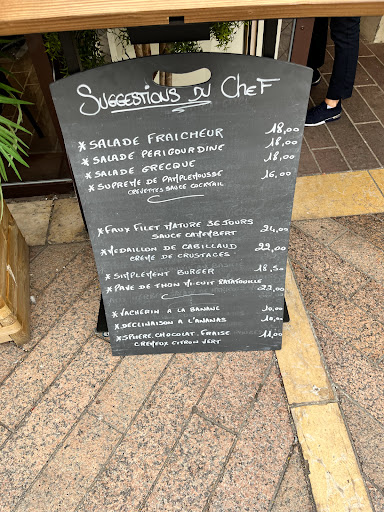 SUGGESTIONS DU CHEF
* SALADE FRAICHEUR 18,00
* SALADE PERIGOURDINE 18,00
* SALADE GRECQUE 18,00
* SUPREME DE PAMPLEMOUSSE 16,00
CREVETTES SAUCE COCKTAIL
* FAUX FILET MATURE 36 JOURS
SAUCE CAMEMBERT 24,00
* MEDAILLON DE CABILLAUD 22,00
CREME DE CRUSTACES
* SIMPLEMENT BURGER 18,50
* PAVE DE THON MI-CUIT RATATOUILLE
22,00
* VACHERIN A LA BANANE 10,00
* DECLINAISON A L'ANANAS 10,00
* SPHERE CHOCOLAT, FRAISE 11,00
CREMEUX CITRON VERT